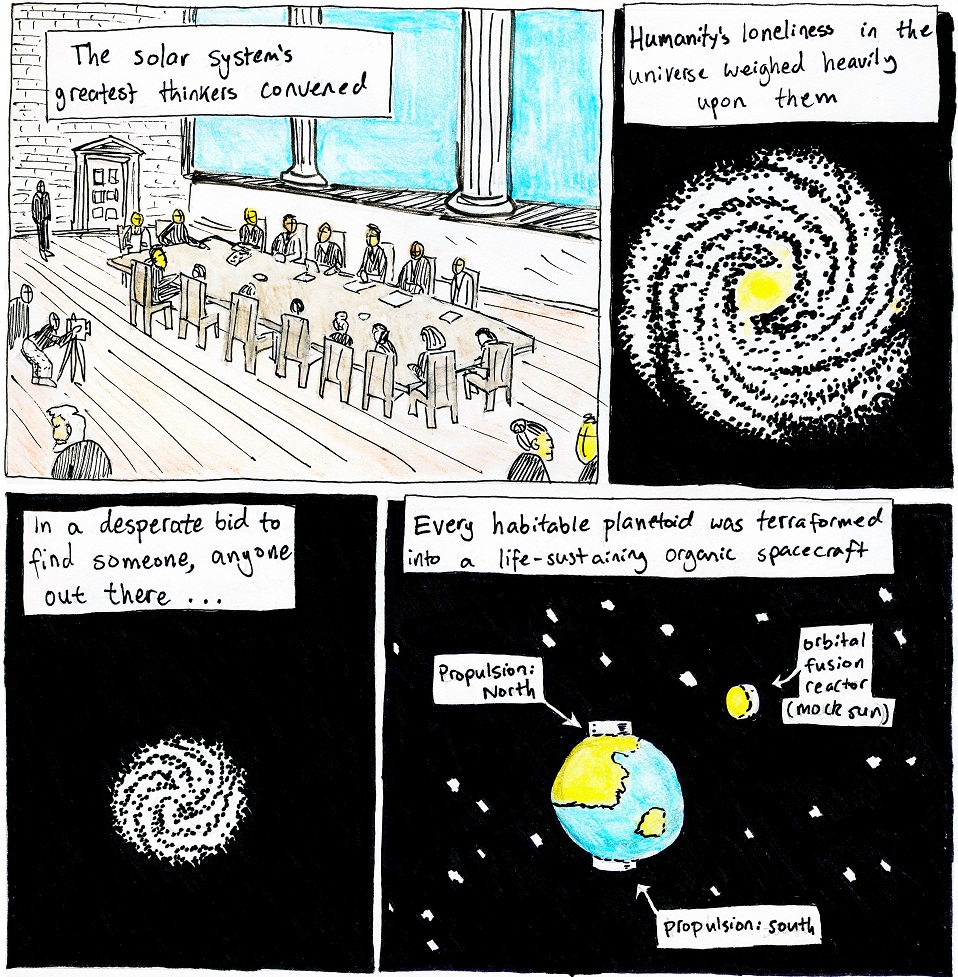 The solar system's
greatest thinkers convened
Humanity's loneliness in the
universe weighed heavily
upon them
In a desperate bid to
find someone, anyone
out there ...
Every habitable planetoid was terraformed
into a life-sustaining organic spacecraft
Propulsion:
North
orbital
fusion
reactor
(mock sun)
propulsion: south